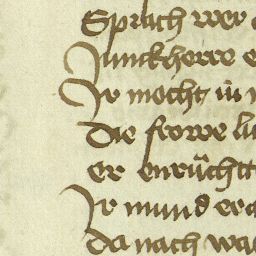 Sprach wer
Junckherre e
Ir mocht in
Die frowe lu
er enruͤcht
Ir mund er
Da nach wa